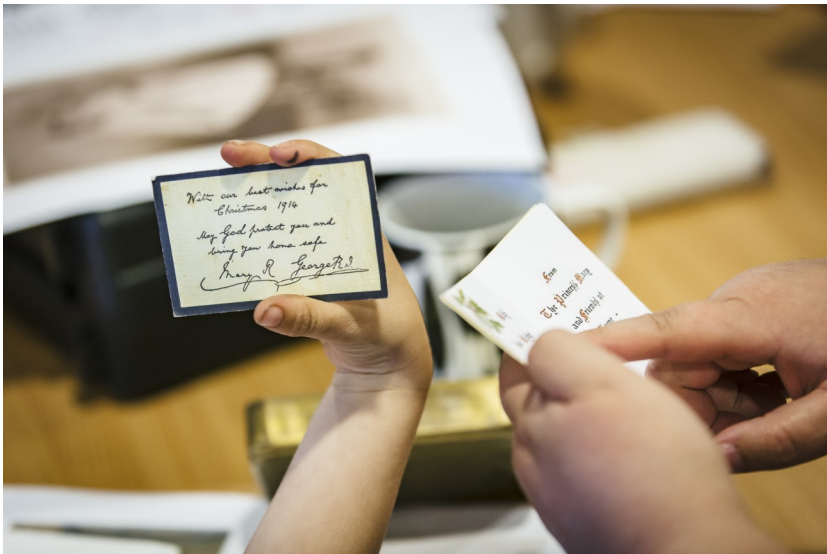 With our best wishes for
Christmas 1914
May God protect you and
bring you home safe
Mary R George R.I.
From
The Princess Mary
and Friends at